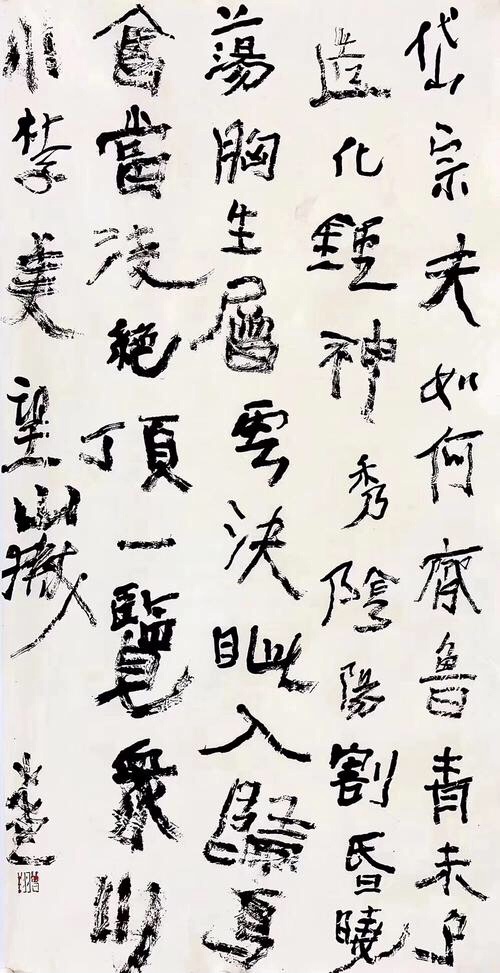 岱宗夫如何齊魯青未了
造化鍾神秀陰陽割昏曉
蕩胸生層雲決眦入歸鳥
會當淩絶頂一覽眾山
小杜子美望嶽